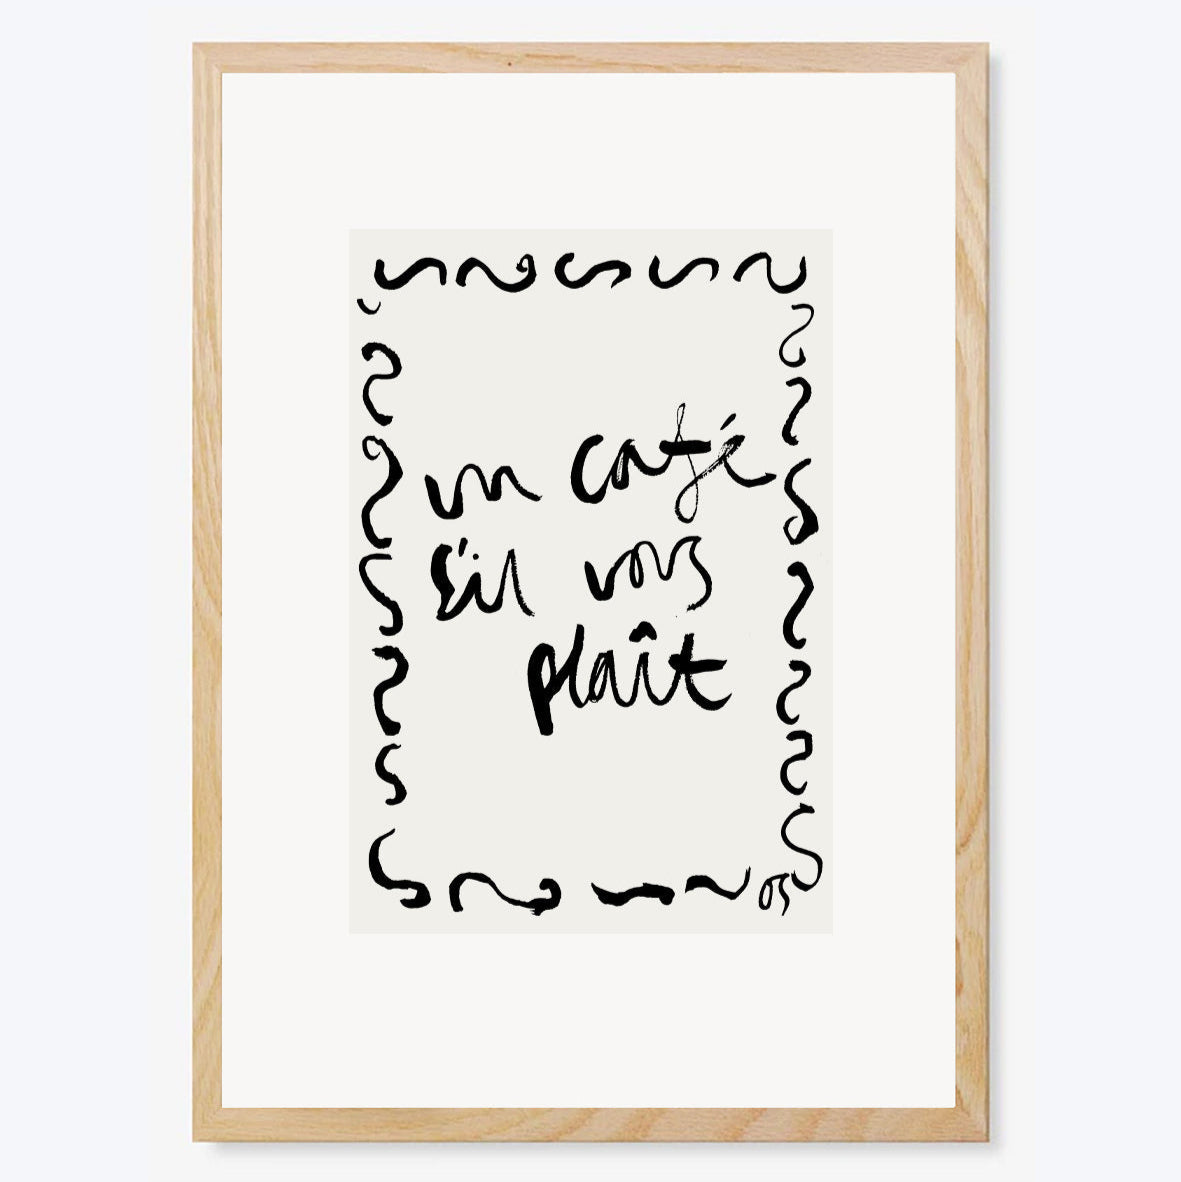 un café
s'il vous
plaît